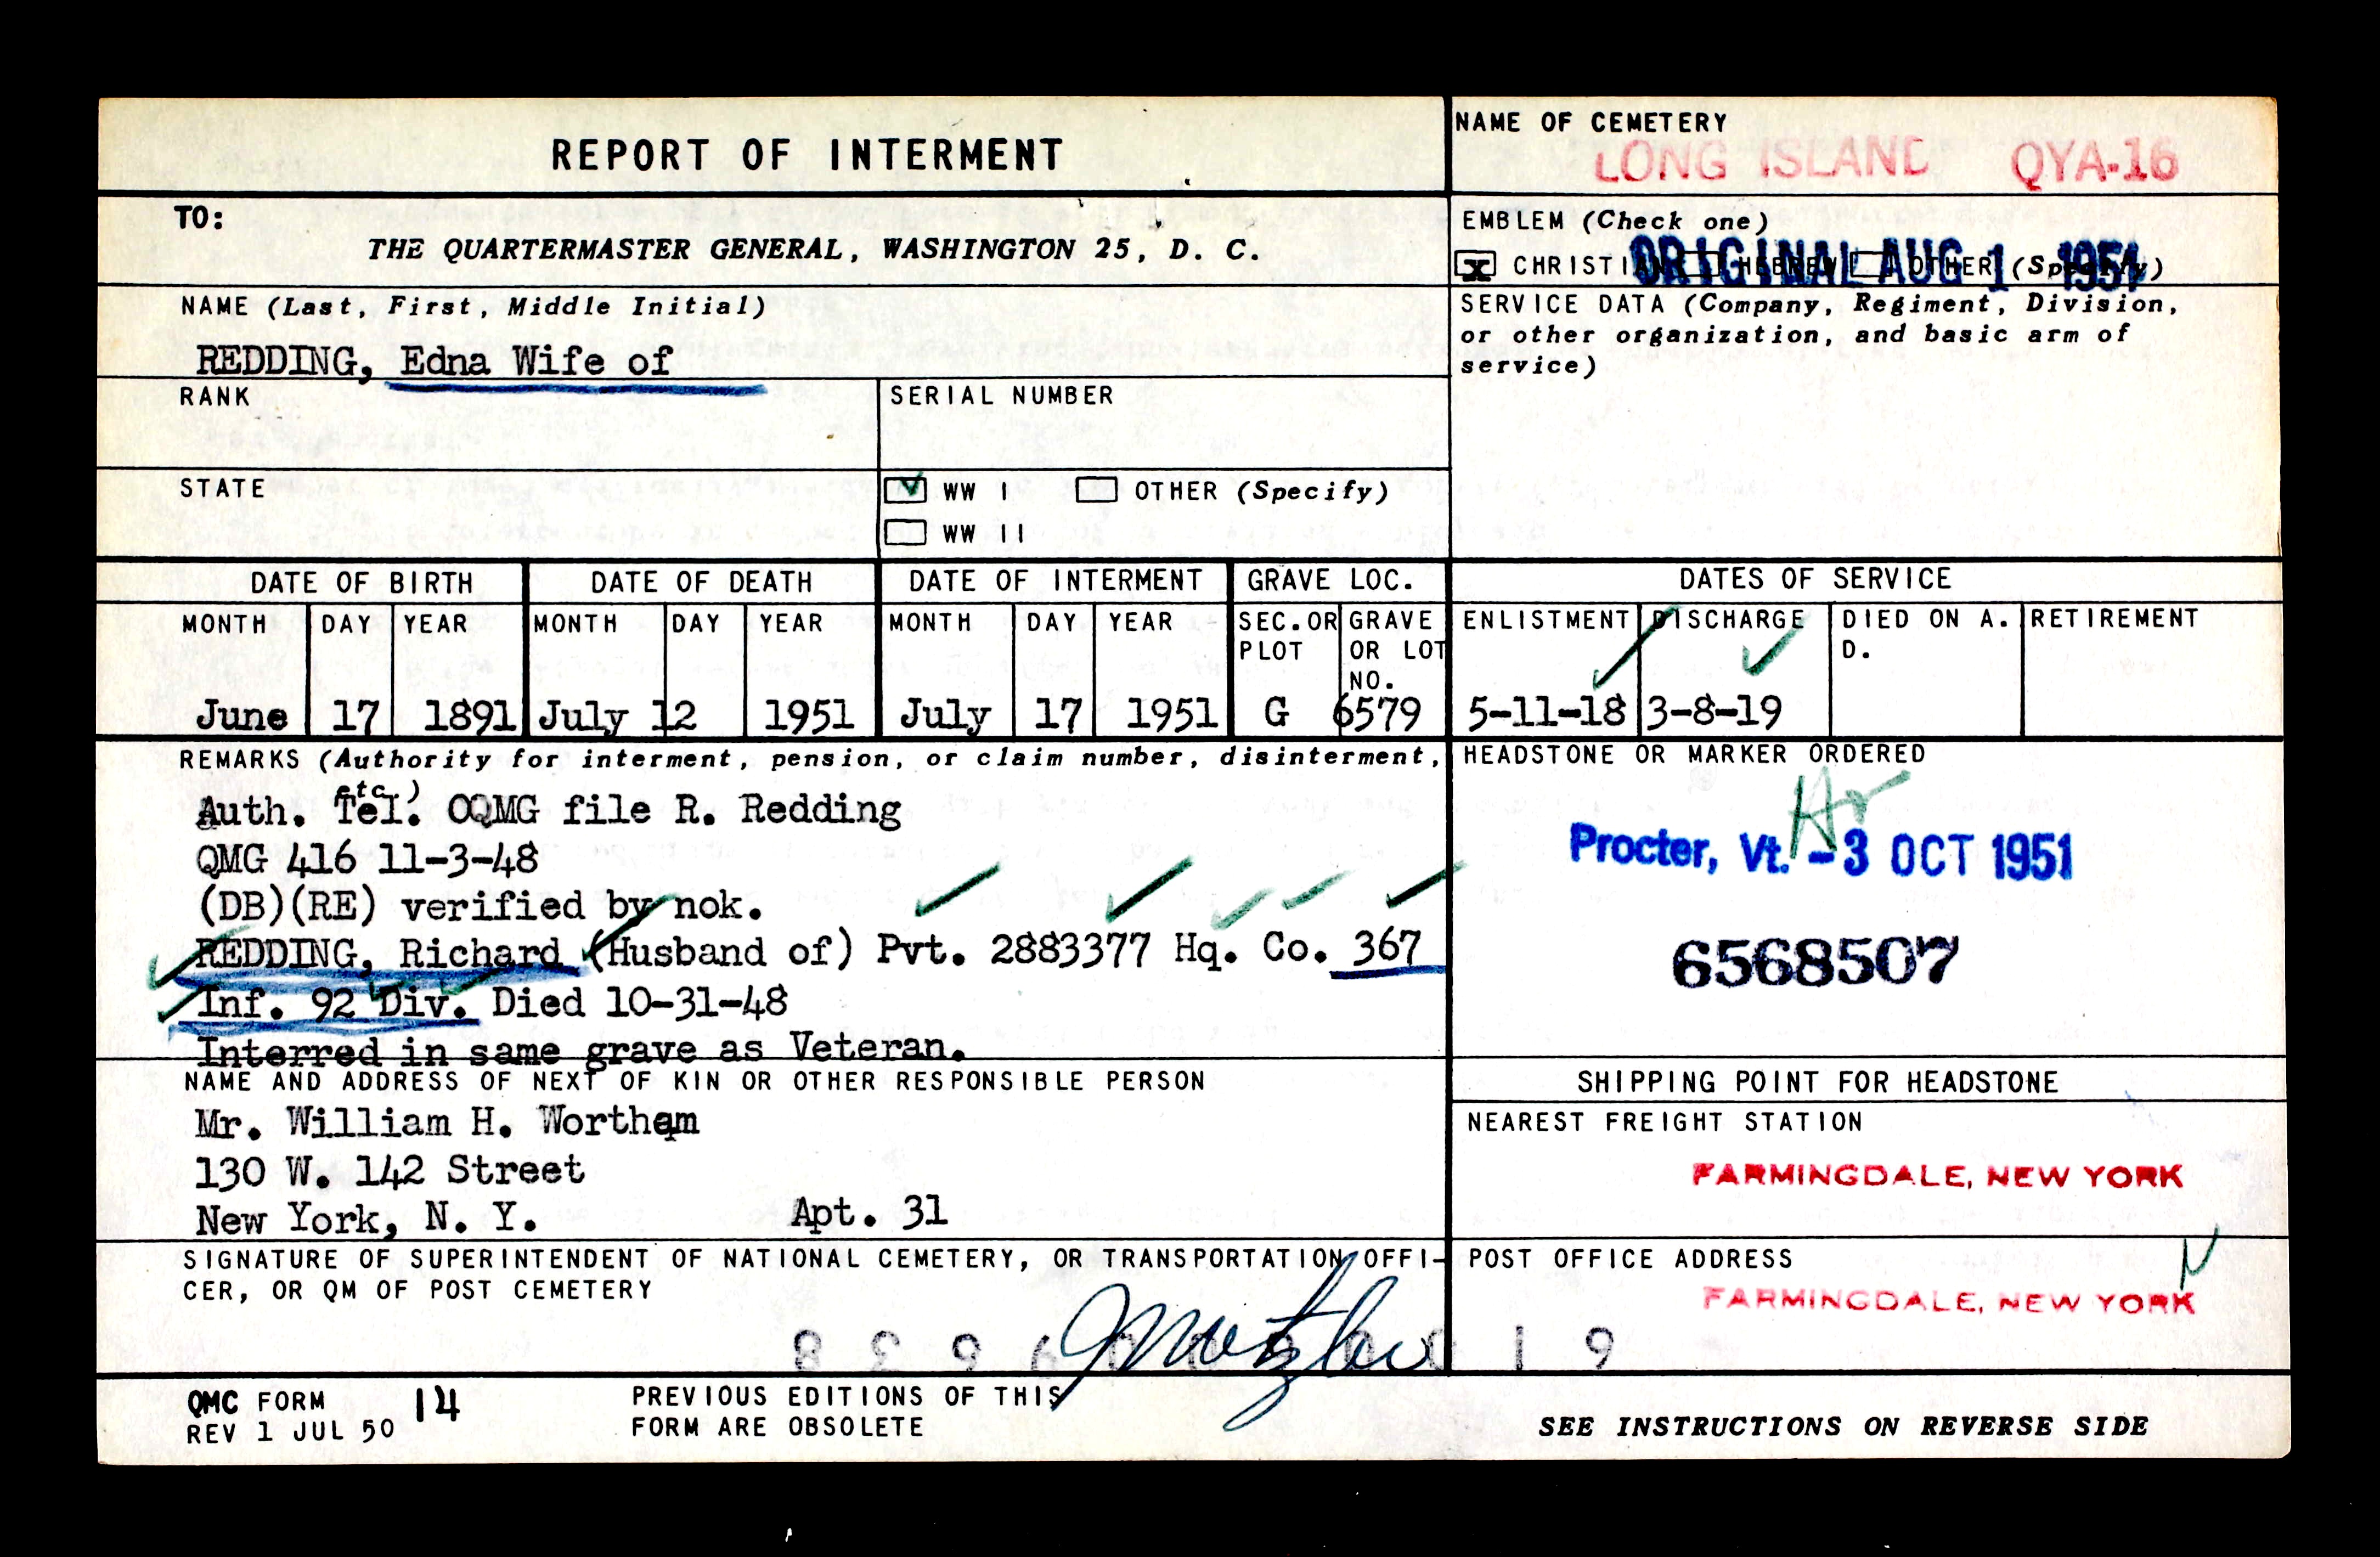 REPORT OF INTERMENT
NAME OF CEMETERY
LONG ISLAND QYA-16
TO:
THE QUARTERMASTER GENERAL, WASHINGTON 25, D. C.
EMBLEM (Check one)
x CHRISTIAN HEBREW OTHER (Specify)
ORIGINAL AUG 1 1951
NAME (Last, First, Middle Initial)
REDDING, Edna Wife of
SERVICE DATA (Company, Regiment, Division,
or other organization, and basic arm of
service)
RANK
SERIAL NUMBER
STATE
WW I OTHER (Specify)
WW II
DATE OF BIRTH DATE OF DEATH DATE OF INTERMENT GRAVE LOC. DATES OF SERVICE
MONTH DAY YEAR MONTH DAY YEAR MONTH DAY YEAR SEC. OR PLOT GRAVE OR LOT NO. ENLISTMENT DISCHARGE DIED ON A. D. RETIREMENT
June 17 1891 July 12 1951 July 17 1951 G 6579 5-11-18 3-8-19
REMARKS (Authority for interment, pension, or claim number, disinterment,
etc.)
Auth. Tel. OQMG file R. Redding
QMG 416 11-3-48
(DB)(RE) verified by nok.
REDDING, Richard (Husband of) Pvt. 2883377 Hq. Co. 367
Inf. 92 Div. Died 10-31-48
Interred in same grave as Veteran.
HEADSTONE OR MARKER ORDERED
Procter, Vt. -3 OCT 1951
6568507
NAME AND ADDRESS OF NEXT OF KIN OR OTHER RESPONSIBLE PERSON
Mr. William H. Wortham
130 W. 142 Street
New York, N. Y. Apt. 31
SHIPPING POINT FOR HEADSTONE
NEAREST FREIGHT STATION
FARMINGDALE, NEW YORK
SIGNATURE OF SUPERINTENDENT OF NATIONAL CEMETERY, OR TRANSPORTATION OFFI-
CER, OR QM OF POST CEMETERY
POST OFFICE ADDRESS
FARMINGDALE, NEW YORK
QMC FORM 14
REV 1 JUL 50
PREVIOUS EDITIONS OF THIS
FORM ARE OBSOLETE
SEE INSTRUCTIONS ON REVERSE SIDE